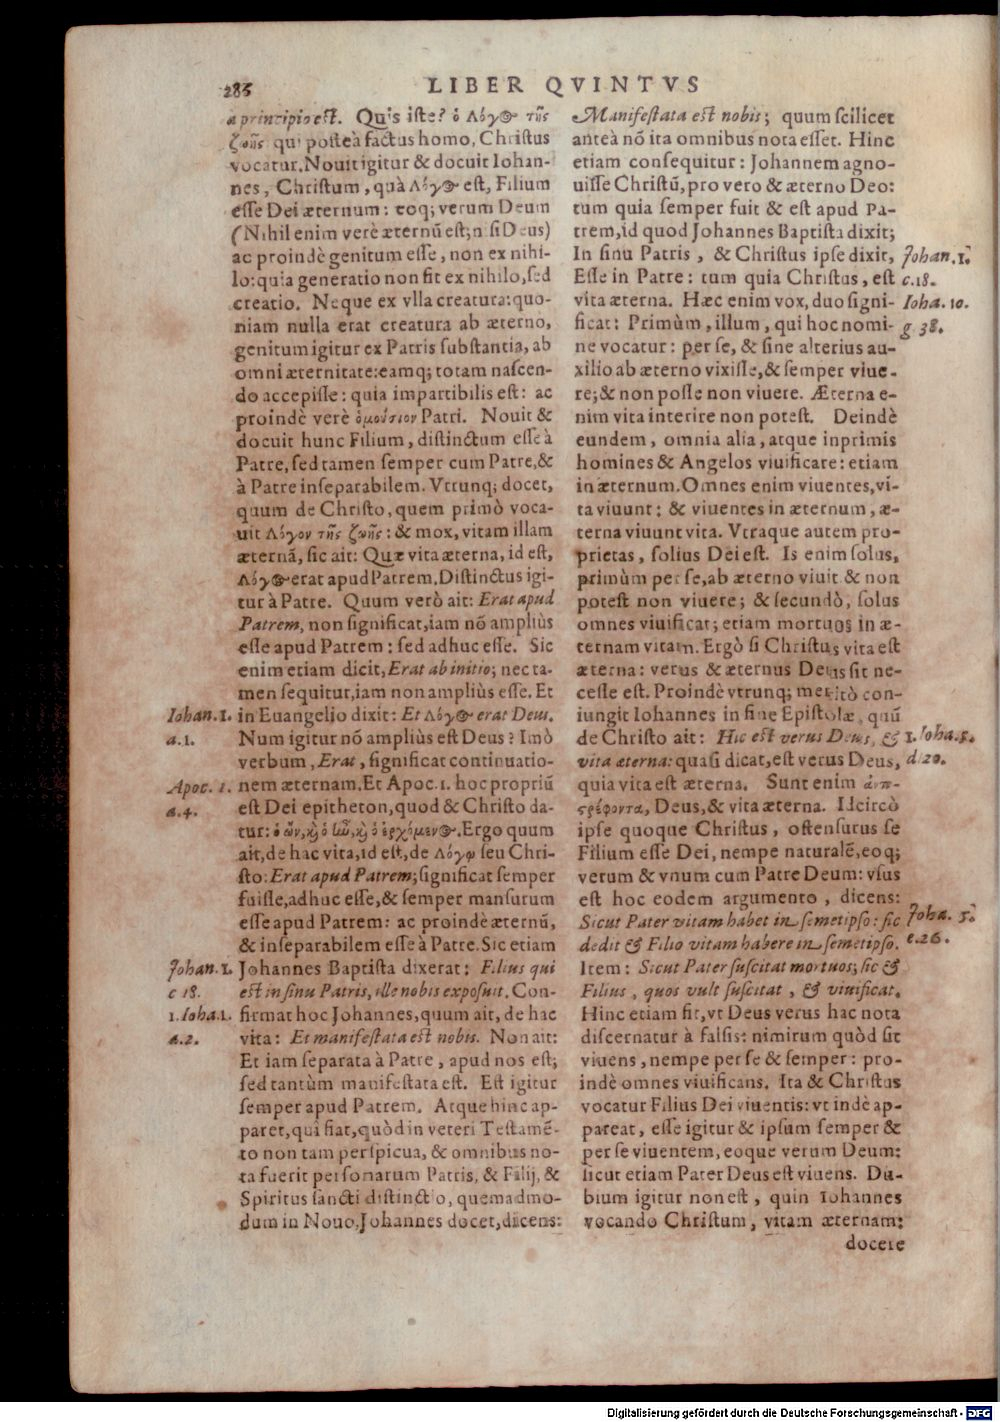 286
LIBER QVINTVS
a principio est. Quis iste? ὁ Λόγος τῆς
ζωῆς qui posteà factus homo, Christus
vocatur. Nouit igitur & docuit Iohan-
nes, Christum, quà Λόγος est, Filium
esse Dei æternum: eoq; verum Deum
(Nihil enim verè æternũ est; nisi Deus)
ac proindè genitum esse, non ex nihi-
lo: quia generatio non fit ex nihilo, sed
creatio. Neque ex vlla creatura: quo-
niam nulla erat creatura ab æterno,
genitum igitur ex Patris substantia, ab
omni æternitate: eamq; totam nascen-
do accepisse: quia impartibilis est: ac
proindè verè ὁμούσιον Patri. Nouit &
docuit hunc Filium, distinctum esse à
Patre, sed tamen semper cum Patre, &
à Patre inseparabilem. Vtrunq; docet,
quum de Christo, quem primò voca-
uit Λόγον τῆς ζωῆς: & mox, vitam illam
æternã, sic ait: Quæ vita æterna, id est,
Λόγος erat apud Patrem, Distinctus igi-
tur à Patre. Quum verò ait: Erat apud
Patrem, non significat, iam nõ ampliùs
esse apud Patrem: sed adhuc esse. Sic
enim etiam dicit, Erat ab initio; nec ta-
men sequitur, iam non ampliùs esse. Et
Iohan. 1. in Euangelio dixit: Et Λόγος erat Deus.
a. 1. Num igitur nõ ampliùs est Deus? Imò
verbum, Erat, significat continuatio-
Apoc. 1. nem æternam. Et Apoc. 1. hoc propriũ
a. 4. est Dei epitheton, quod & Christo da-
tur: ὁ ὤν, καὶ ὁ ἦν, καὶ ὁ ἐρχόμενος. Ergo quum
ait, de hac vita, id est, de Λόγῳ seu Chri-
sto: Erat apud Patrem; significat semper
fuisse, adhuc esse, & semper mansurum
esse apud Patrem: ac proindè æternũ,
& inseparabilem esse à Patre. Sic etiam
Johan. 1. Johannes Baptista dixerat: Filius qui
c 18. est in sinu Patris, ille nobis exposuit. Con-
1. Ioha. 1. firmat hoc Johannes, quum ait, de hac
a. 2. vita: Et manifestata est nobis. Non ait:
Et iam separata à Patre, apud nos est;
sed tantùm manifestata est. Est igitur
semper apud Patrem. Atque hinc ap-
paret, qui fiat, quòd in veteri Testamẽ-
to non tam perspicua, & omnibus no-
ta fuerit personarum Patris, & Filij, &
Spiritus sancti distinctio, quemadmo-
dum in Nouo. Johannes docet, dicens:
Manifestata est nobis; quum scilicet
anteà nõ ita omnibus nota esset. Hinc
etiam consequitur: Johannem agno-
uisse Christũ, pro vero & æterno Deo:
tum quia semper fuit & est apud Pa-
trem, id quod Johannes Baptista dixit;
In sinu Patris, & Christus ipse dixit, Johan. 1.
Esse in Patre: tum quia Christus, est c. 18.
vita æterna. Hæc enim vox, duo signi- Ioha. 10.
ficat: Primùm, illum, qui hoc nomi- g 38.
ne vocatur: per se, & sine alterius au-
xilio ab æterno vixisse, & semper viue-
re; & non posse non viuere. Æterna e-
nim vita interire non potest. Deindè
eundem, omnia alia, atque inprimis
homines & Angelos viuificare: etiam
in æternum. Omnes enim viuentes, vi-
ta viuunt: & viuentes in æternum, æ-
terna viuunt vita. Vtraque autem pro-
prietas, solius Dei est. Is enim solus,
primùm per se, ab æterno viuit & non
potest non viuere; & secundò, solus
omnes viuificat; etiam mortuos in æ-
ternam vitam. Ergò si Christus vita est
æterna: verus & æternus Deus sit ne-
cesse est. Proindè vtrunq; meritò con-
iungit Iohannes in fine Epistolæ, quũ
de Christo ait: Hic est verus Deus, & 1. Joha. 5.
vita æterna: quasi dicat, est verus Deus, d 20.
quia vita est æterna. Sunt enim ἀντι-
στρέφοντα, Deus, & vita æterna. Idcircò
ipse quoque Christus, ostensurus se
Filium esse Dei, nempe naturalẽ, eoq;
verum & vnum cum Patre Deum: vsus
est hoc eodem argumento, dicens:
Sicut Pater vitam habet in semetipso: sic Joha. 5.
dedit & Filio vitam habere in semetipso. e. 26.
Item: Sicut Pater suscitat mortuos; sic &
Filius, quos vult suscitat, & viuificat.
Hinc etiam fit, vt Deus verus hac nota
discernatur à falsis: nimirum quòd sit
viuens, nempe per se & semper: pro-
indè omnes viuificans. Ita & Christus
vocatur Filius Dei viuentis: vt indè ap-
pareat, esse igitur & ipsum semper &
per se viuentem, eoque verum Deum:
sicut etiam Pater Deus est viuens. Du-
bium igitur non est, quin Iohannes
vocando Christum, vitam æternam:
docere
Digitalisierung gefördert durch die Deutsche Forschungsgemeinschaft - DFG